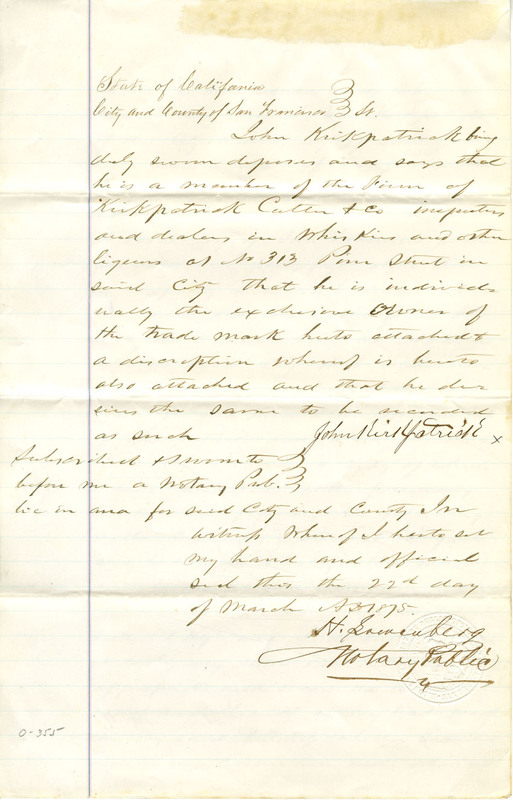 State of California
City and County of San Francisco } SS.
John Kirkpatrick being
duly sworn deposes and says that
he is a member of the Firm of
Kirkpatrick Cutter & Co importers
and dealers in Whiskies and other
liquors at No 313 Pine Street in
said City that he is individ-
ually the exclusive Owner of
the trade mark hereto attached &
a discription whereof is hereto
also attached and that he des-
ires the same to be recorded
as such John Kirkpatrick x
Subscribed & sworn to }
before me a Notary Pub- }
lic in and for said City and County In
witness Whereof I hereto set
my hand and official
seal this the 22d day
of March AD 1875.
H. Lowenberg
Notary Public
0-355